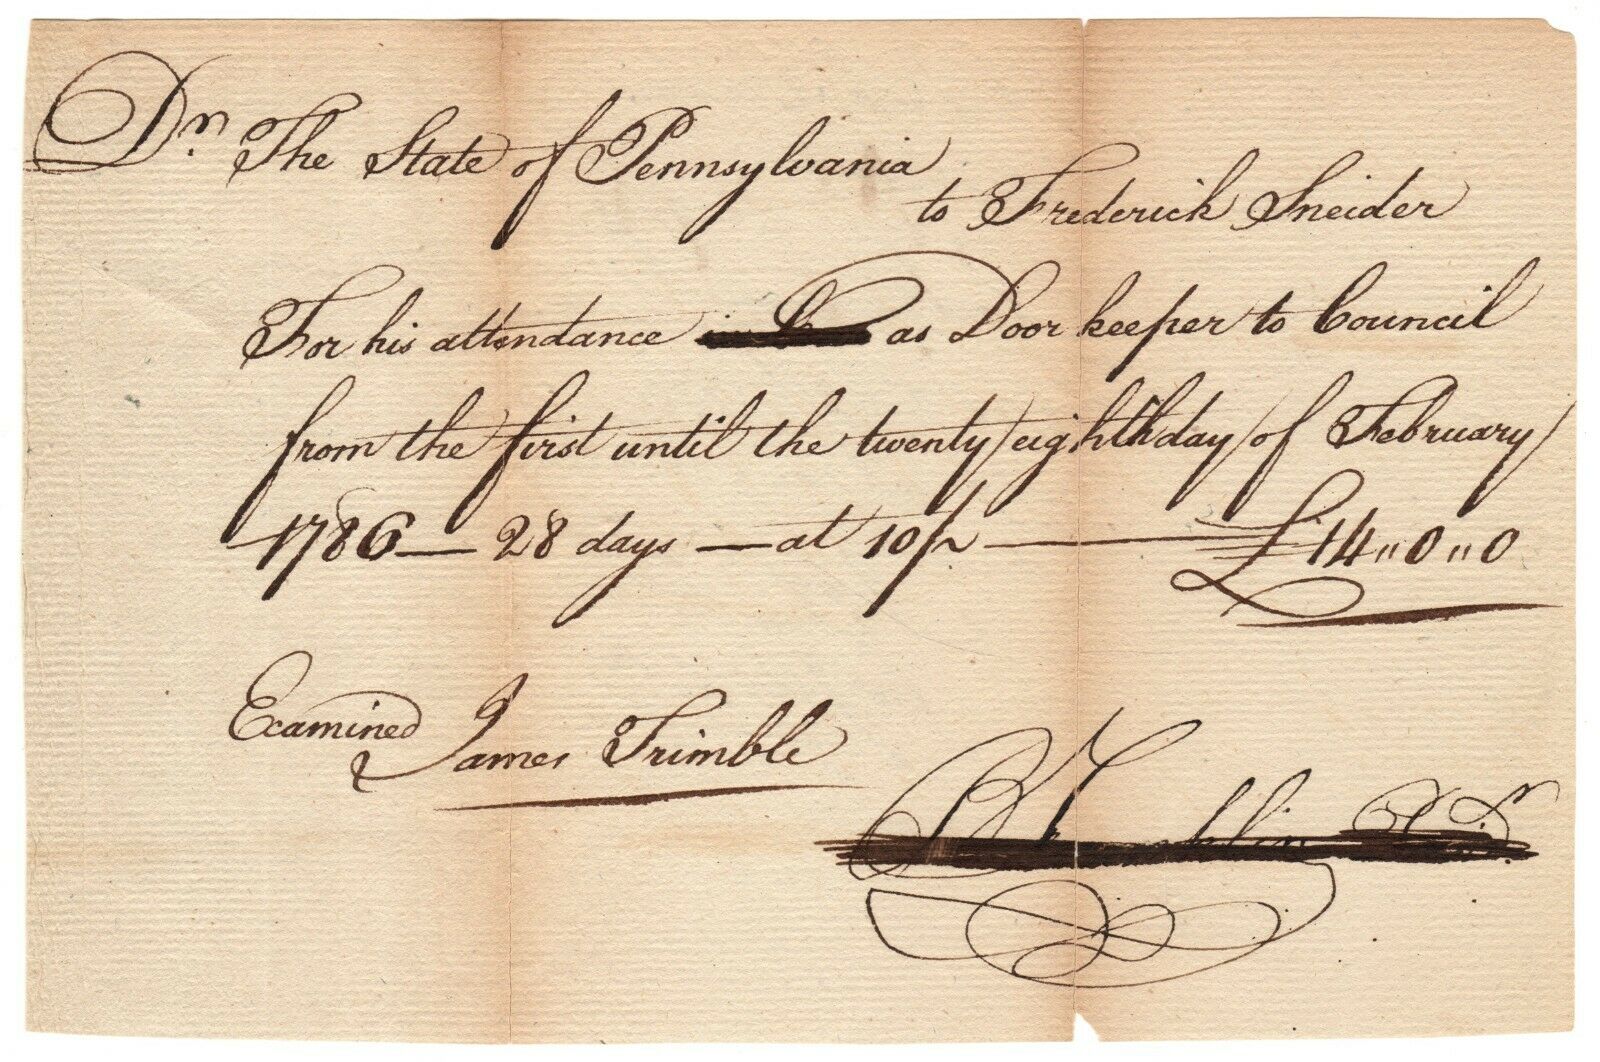 Dr. The State of Pennsylvania
to Frederick Sneider
For his attendance as Door keeper to Council
from the first until the twenty eighth day of February
1786 — 28 days — at 10/ — £14 " 0 " 0
Examined
James Trimble
B Franklin